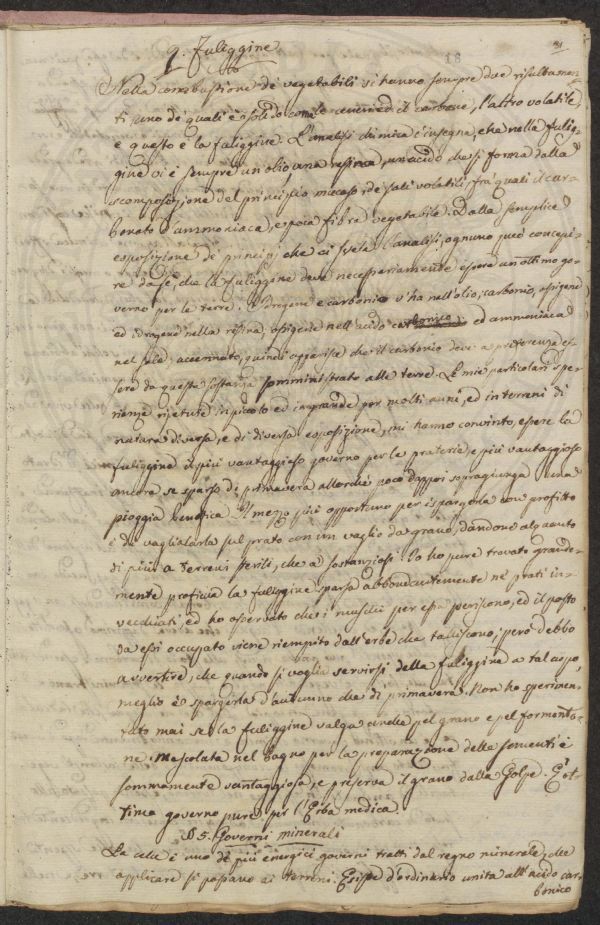 31
18
9. Fuliggine
Nella combustione de' vegetabili vi hanno sempre due risultamen-
ti uno de' quali è solido come le ceneri ed il carbone, l'altro volatile,
e questo è la fuliggine. L'analisi chimica c'insegna, che nella fulig-
gine vi è sempre un olio, una resina, un acido che si forma dalla
scomposizione del principio mucoso, de' sali volatili, fra' quali il car-
bonato d'ammoniaca, e poca fibra vegetabile. Dalla semplice
esposizione de' principj, che ci svela l'analisi, ognuno può concepi-
re da se, che la fuliggine deve necessariamente essere un ottimo go-
verno per le terre. Idrogene e carbonio v'ha nell'olio; carbonio, ossigene
ed idrogene nella resina, ossigene nell'acido ed ammoniaca
nel sale accennato; quindi apparisce che il carbonio deve a preferenza es-
sere da questa sostanza somministrato alle terre. Le mie particolari spe-
rienze ripetute in picolo ed in grande per molti anni, ed in terreni di
natura diversa, e di diversa esposizione, mi hanno convinto, essere la
fuliggine il più vantaggioso governo per le praterie, e più vantaggioso
ancora se sparso di primavera allorchè poco dappoi sopragiunga una
pioggia benefica. Il mezzo più opportuno per ispargerla con profitto
è di vagliarla sul prato con un vaglio da grano, dandone alquanto
di più a terreni sterili, che a sostanziosi. Io ho pure trovato grande-
mente proficua la fuliggine sparsa abbondantemente ne' prati in-
vecchiati, ed ho osservato che i muschi per essa periscono, ed il posto
da essi occupato viene riempito dall'erbe che talliscono; però debbo
avvertire, che quando si voglia servirsi della fuliggine a tal uopo,
meglio è spargerla d'autunno che di primavera. Non ho sperimen-
tato mai se la fuliggine valga anche pel grano e pel formento-
ne. Mescolata nel bagno per la preparazione delle sementi è
sommamente vantaggiosa, e preserva il grano dalla Golpe. È ot-
timo governo pure per l'Erba medica.
§ 5. Governi minerali
La calce è uno de' più energici governi tratti dal regno minerale, che
applicare si possano ai terreni. Esiste d'ordinario unita all'acido car-
bonico